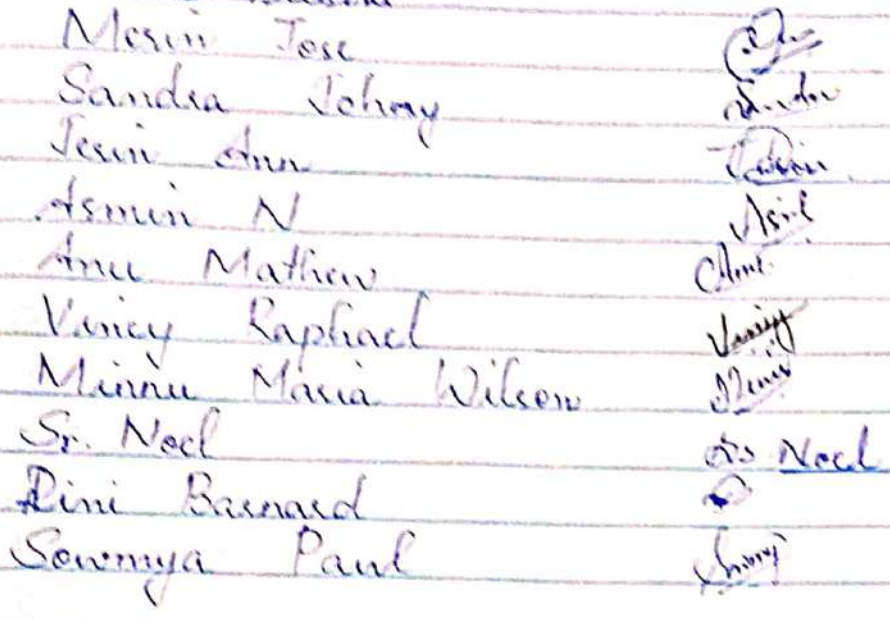 Merin Jose
Sandra Johny
Jesin Ann Jesin
Asmin N
Anu Mathew Anu
Vincy Raphael Vincy
Minnu Maria Wilson
Sr. Noel Sr Noel
Dini Barnard
Sowmya Paul